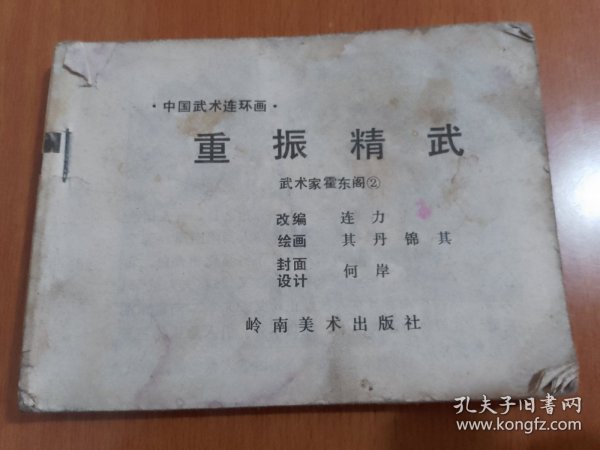 ·中国武术连环画·
重振精武
武术家霍东阁②
改编 连力
绘画 其丹锦其
封面设计 何岸
岭南美术出版社
孔夫子旧书网
www.kongfz.com